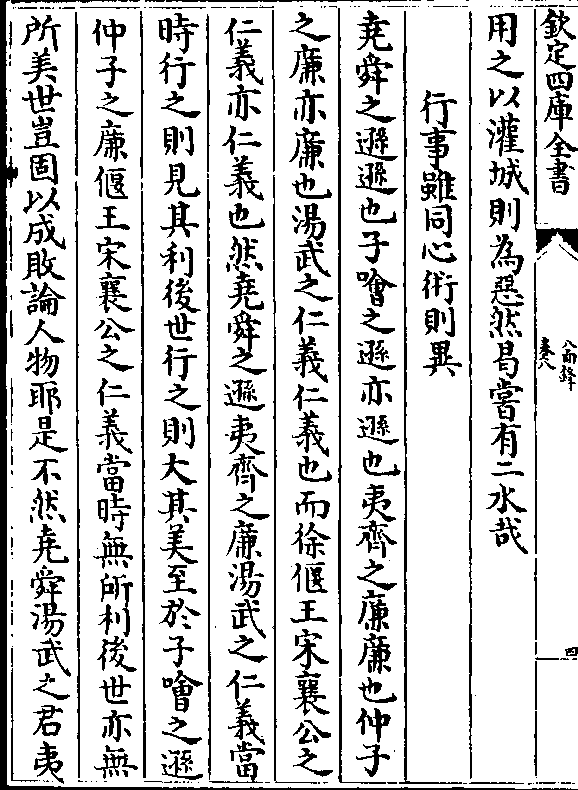 欽定四庫全書
八面鋒
卷八
四
用之以灌城則為惡然曷嘗有二水哉
行事雖同心術則異
堯舜之遜遜也子噲之遜亦遜也夷齊之廉廉也仲子
之廉亦廉也湯武之仁義仁義也而徐偃王宋襄公之
仁義亦仁義也然堯舜之遜夷齊之廉湯武之仁義當
時行之則見其利後世行之則大其美至於子噲之遜
仲子之廉偃王宋襄公之仁義當時無所利後世亦無
所美世豈固以成敗論人物耶是不然堯舜湯武之君夷